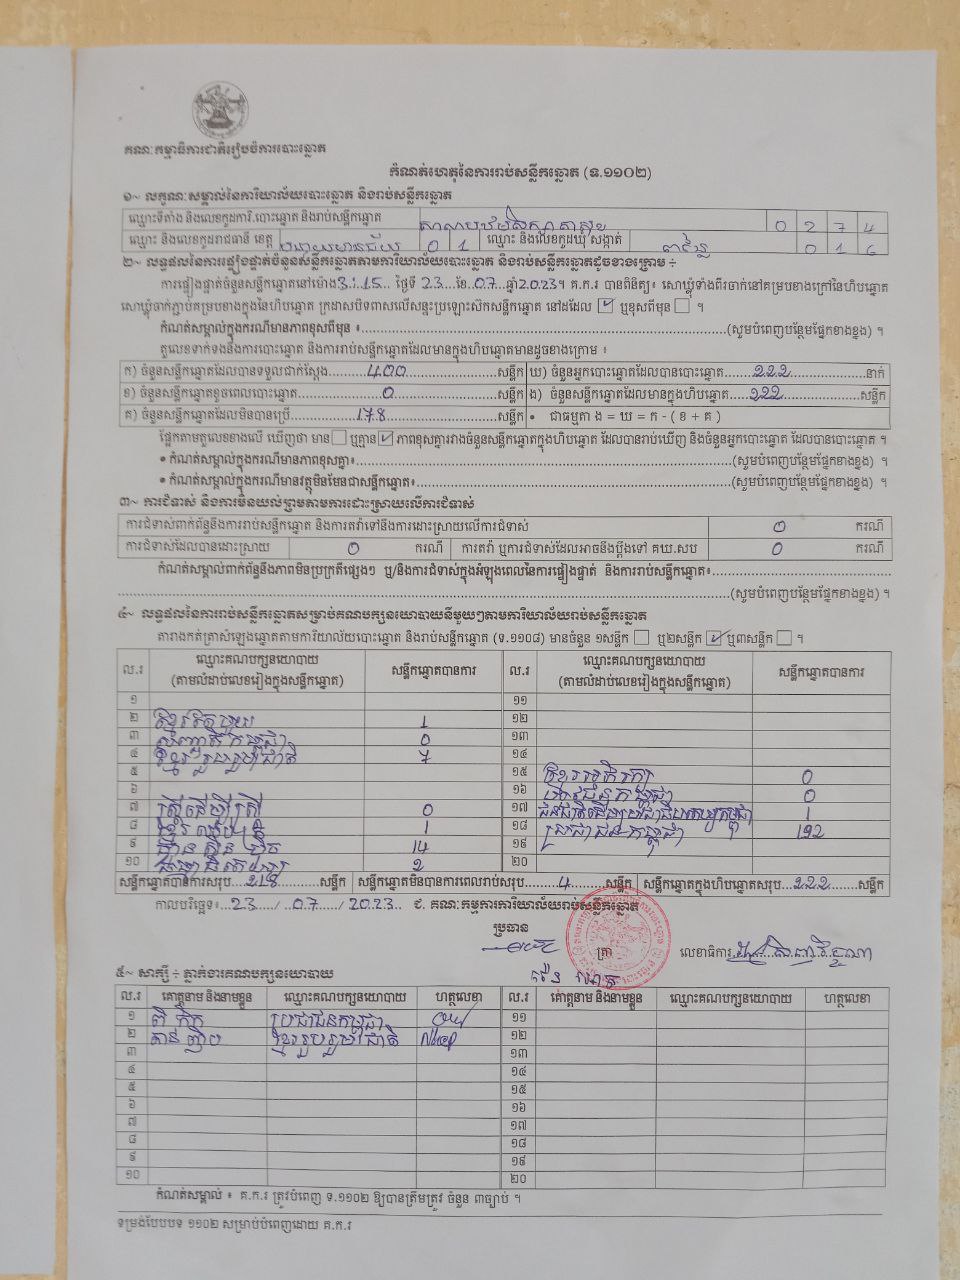 គណៈកម្មាធិការជាតិរៀបចំការបោះឆ្នោត
កំណត់ហេតុនៃការរាប់សន្លឹកឆ្នោត (ទ.១១០២)
១~ លក្ខណៈសម្គាល់នៃការិយាល័យបោះឆ្នោត និងរាប់សន្លឹកឆ្នោត
ឈ្មោះទីតាំង និងលេខកូដការិ.បោះឆ្នោត និងរាប់សន្លឹកឆ្នោត 0 2 7 4
ឈ្មោះ និងលេខកូដរាជធានី ខេត្ត បន្ទាយមានជ័យ 0 1 ឈ្មោះ និងលេខកូដឃុំ សង្កាត់ 0 1 6
២~ លទ្ធផលនៃការផ្ទៀងផ្ទាត់ចំនួនសន្លឹកឆ្នោតតាមការិយាល័យបោះឆ្នោត និងរាប់សន្លឹកឆ្នោតដូចខាងក្រោម ÷
ការផ្ទៀងផ្ទាត់ចំនួនសន្លឹកឆ្នោតនៅម៉ោង 3:15 ថ្ងៃទី 23 ខែ 07 ឆ្នាំ 2023។ គ.ក.រ បានពិនិត្យ៖ សោឃ្លុំទាំងពីរចាក់នៅគម្របខាងក្រៅនៃហិបឆ្នោត
សោឃ្លុំចាក់ភ្ជាប់គម្របខាងក្នុងនៃហិបឆ្នោត ក្រដាសបិទពាសលើសន្ទះប្រឡោះស៊កសន្លឹកឆ្នោត នៅដដែល ☑ ឬខុសពីមុន ☐ ។
កំណត់សម្គាល់ក្នុងករណីមានភាពខុសពីមុន ៖ (សូមបំពេញបន្ថែមផ្នែកខាងខ្នង) ។
តួលេខទាក់ទងនឹងការបោះឆ្នោត និងការរាប់សន្លឹកឆ្នោតដែលមានក្នុងហិបឆ្នោតមានដូចខាងក្រោម ៖
ក) ចំនួនសន្លឹកឆ្នោតដែលបានទទួលជាក់ស្តែង 400 សន្លឹក ឃ) ចំនួនអ្នកបោះឆ្នោតដែលបានបោះឆ្នោត 222 នាក់
ខ) ចំនួនសន្លឹកឆ្នោតខូចពេលបោះឆ្នោត 0 សន្លឹក ង) ចំនួនសន្លឹកឆ្នោតដែលមានក្នុងហិបឆ្នោត 222 សន្លឹក
គ) ចំនួនសន្លឹកឆ្នោតដែលមិនបានប្រើ 178 សន្លឹក • ជាធម្មតា ង = ឃ = ក - ( ខ + គ )
ផ្អែកតាមតួលេខខាងលើ ឃើញថា មាន ☐ ឬគ្មាន ☑ ភាពខុសគ្នារវាងចំនួនសន្លឹកឆ្នោតក្នុងហិបឆ្នោត ដែលបានរាប់ឃើញ និងចំនួនអ្នកបោះឆ្នោត ដែលបានបោះឆ្នោត ។
• កំណត់សម្គាល់ក្នុងករណីមានភាពខុសគ្នា៖ (សូមបំពេញបន្ថែមផ្នែកខាងខ្នង) ។
• កំណត់សម្គាល់ក្នុងករណីមានវត្ថុមិនមែនជាសន្លឹកឆ្នោត៖ (សូមបំពេញបន្ថែមផ្នែកខាងខ្នង) ។
៣~ ការជំទាស់ និងការមិនយល់ព្រមតាមការដោះស្រាយលើការជំទាស់
ការជំទាស់ពាក់ព័ន្ធនឹងការរាប់សន្លឹកឆ្នោត និងការតវ៉ាទៅនឹងការដោះស្រាយលើការជំទាស់ 0 ករណី
ការជំទាស់ដែលបានដោះស្រាយ 0 ករណី ការតវ៉ា ឬការជំទាស់ដែលអាចនឹងប្តឹងទៅ គឃ.សប 0 ករណី
កំណត់សម្គាល់ពាក់ព័ន្ធនឹងភាពមិនប្រក្រតីផ្សេងៗ ឬ/និងការជំទាស់ក្នុងអំឡុងពេលនៃការផ្ទៀងផ្ទាត់ និងការរាប់សន្លឹកឆ្នោត៖
(សូមបំពេញបន្ថែមផ្នែកខាងខ្នង) ។
៤~ លទ្ធផលនៃការរាប់សន្លឹកឆ្នោតសម្រាប់គណបក្សនយោបាយនីមួយៗតាមការិយាល័យរាប់សន្លឹកឆ្នោត
តារាងកត់ត្រាសំឡេងឆ្នោតតាមការិយាល័យបោះឆ្នោត និងរាប់សន្លឹកឆ្នោត (ទ.១១០៨) មានចំនួន ១សន្លឹក ☐ ឬ២សន្លឹក ☑ ឬ៣សន្លឹក ☐ ។
ល.រ ឈ្មោះគណបក្សនយោបាយ (តាមលំដាប់លេខរៀងក្នុងសន្លឹកឆ្នោត) សន្លឹកឆ្នោតបានការ ល.រ ឈ្មោះគណបក្សនយោបាយ (តាមលំដាប់លេខរៀងក្នុងសន្លឹកឆ្នោត) សន្លឹកឆ្នោតបានការ
១ ១១
២ 1 ១២
៣ 0 ១៣
៤ ខ្មែររួបរួមជាតិ 7 ១៤
៥ ១៥ 0
៦ ១៦ 0
៧ ស្ត្រីដើម្បីស្ត្រី 0 ១៧ 1
៨ 1 ១៨ ប្រជាជនកម្ពុជា 192
៩ 14 ១៩
១០ 2 ២០
សន្លឹកឆ្នោតបានការសរុប 218 សន្លឹក សន្លឹកឆ្នោតមិនបានការពេលរាប់សរុប 4 សន្លឹក សន្លឹកឆ្នោតក្នុងហិបឆ្នោតសរុប 222 សន្លឹក
កាលបរិច្ឆេទ៖ 23 / 07 / 2023 ជ. គណៈកម្មការការិយាល័យរាប់សន្លឹកឆ្នោត
ប្រធាន
ត្រា លេខាធិការ
៥~ សាក្សី ÷ ភ្នាក់ងារគណបក្សនយោបាយ
ល.រ គោត្តនាម និងនាមខ្លួន ឈ្មោះគណបក្សនយោបាយ ហត្ថលេខា ល.រ គោត្តនាម និងនាមខ្លួន ឈ្មោះគណបក្សនយោបាយ ហត្ថលេខា
១ ប្រជាជនកម្ពុជា ១១
២ ខ្មែររួបរួមជាតិ ១២
៣ ១៣
៤ ១៤
៥ ១៥
៦ ១៦
៧ ១៧
៨ ១៨
៩ ១៩
១០ ២០
កំណត់សម្គាល់ ៖ គ.ក.រ ត្រូវបំពេញ ទ.១១០២ ឱ្យបានត្រឹមត្រូវ ចំនួន ៣ច្បាប់ ។
ទម្រង់បែបបទ ១១០២ សម្រាប់បំពេញដោយ គ.ក.រ